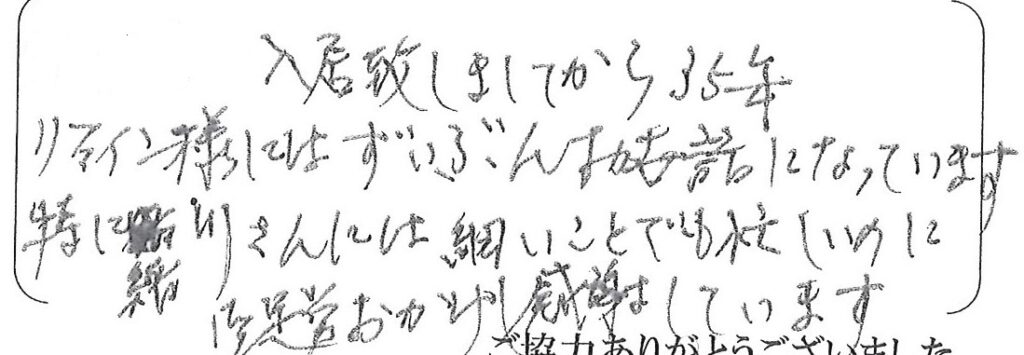 入居致しましてから35年
リアイン様にはずいぶんお世話になっています
特に さんには細いことでも忙しいのに
御足労おかけし感謝しています
ご協力ありがとうございました